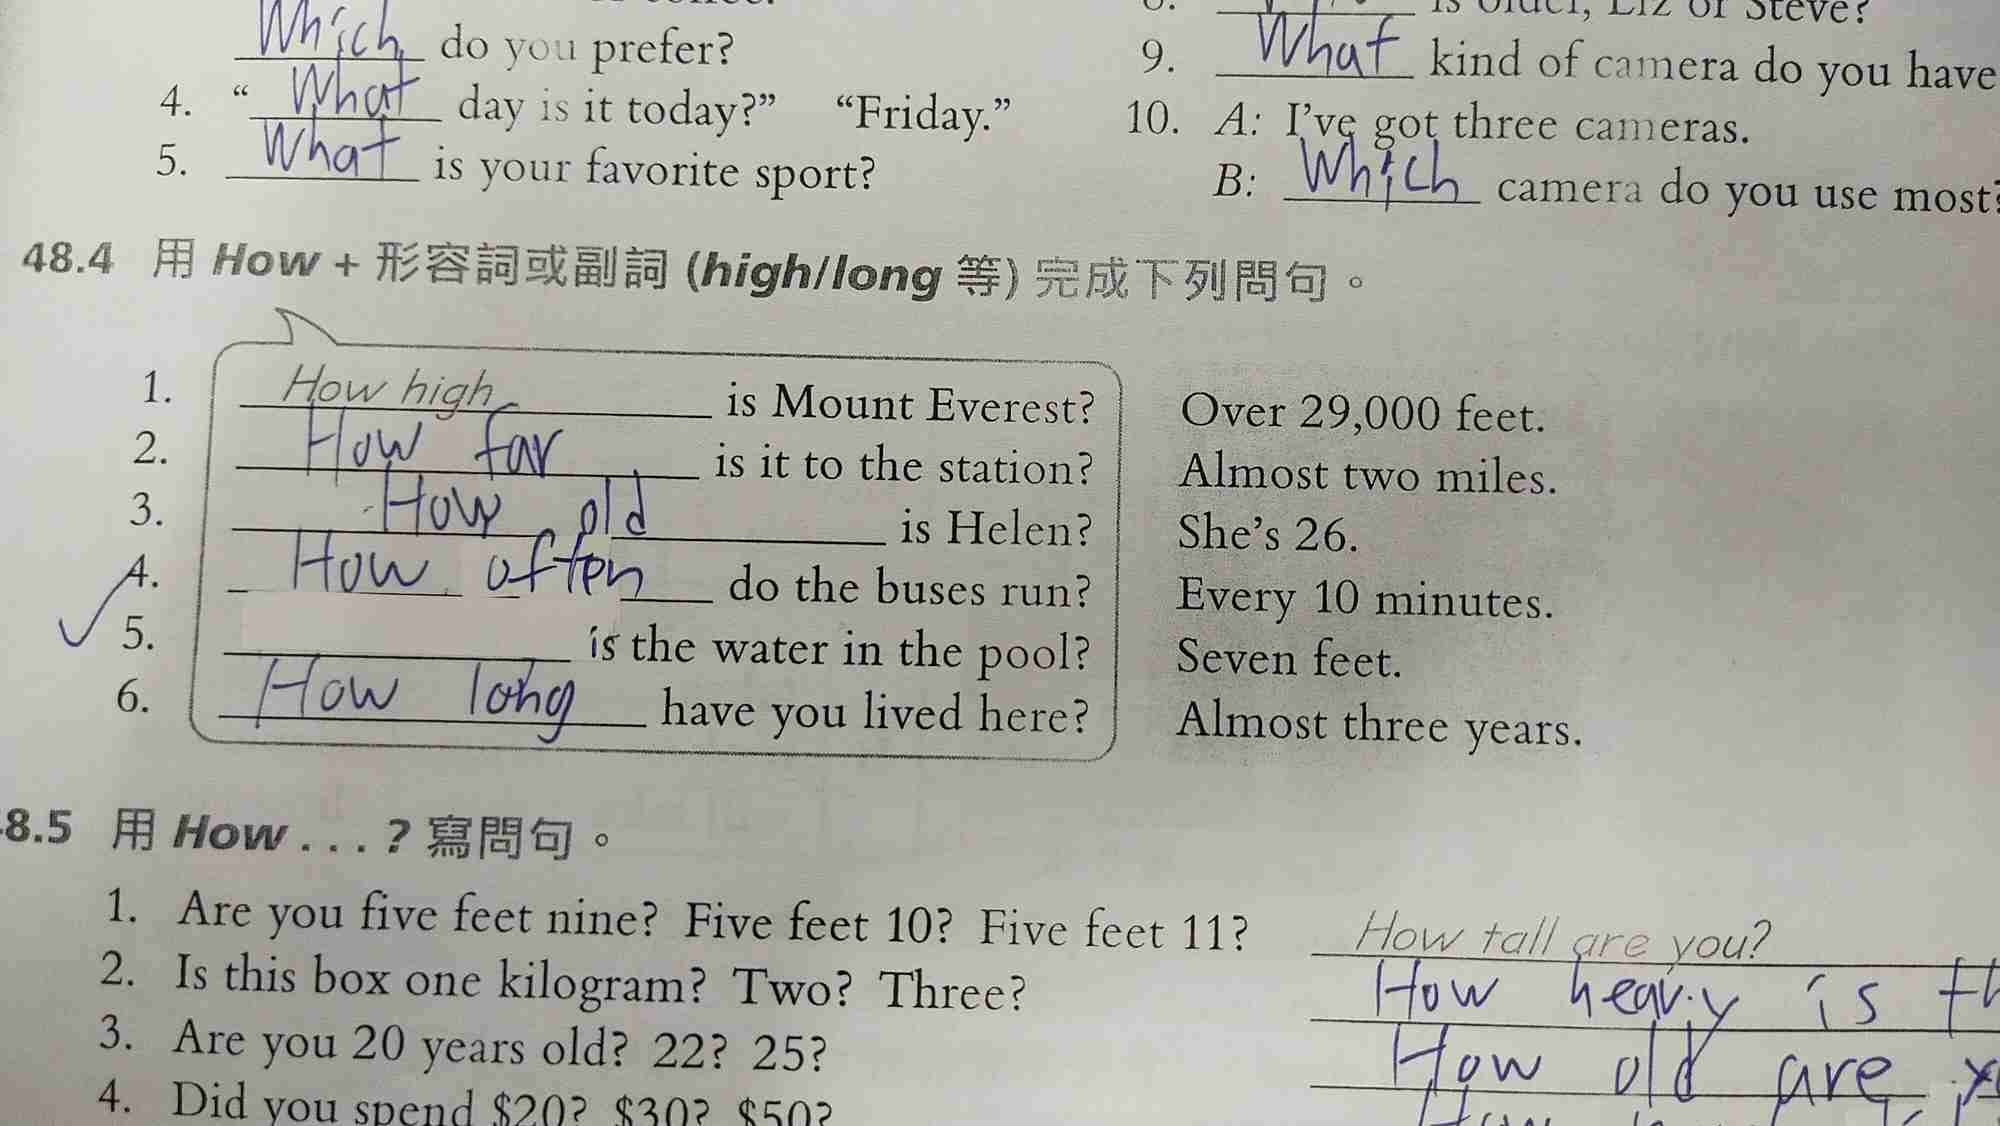 Which do you prefer?
is older, Liz or Steve?
4. “ What day is it today?” “Friday.”
9. What kind of camera do you have
5. What is your favorite sport?
10. A: I’ve got three cameras.
B: Which camera do you use most?
48.4 用 How + 形容詞或副詞 (high/long 等) 完成下列問句。
1. How high is Mount Everest? Over 29,000 feet.
2. How far is it to the station? Almost two miles.
3. How old is Helen? She’s 26.
4. How often do the buses run? Every 10 minutes.
5. is the water in the pool? Seven feet.
6. How long have you lived here? Almost three years.
8.5 用 How . . . ? 寫問句。
1. Are you five feet nine? Five feet 10? Five feet 11? How tall are you?
2. Is this box one kilogram? Two? Three? How heavy is th
3. Are you 20 years old? 22? 25? How old are y
4. Did you spend $20? $30? $50? How